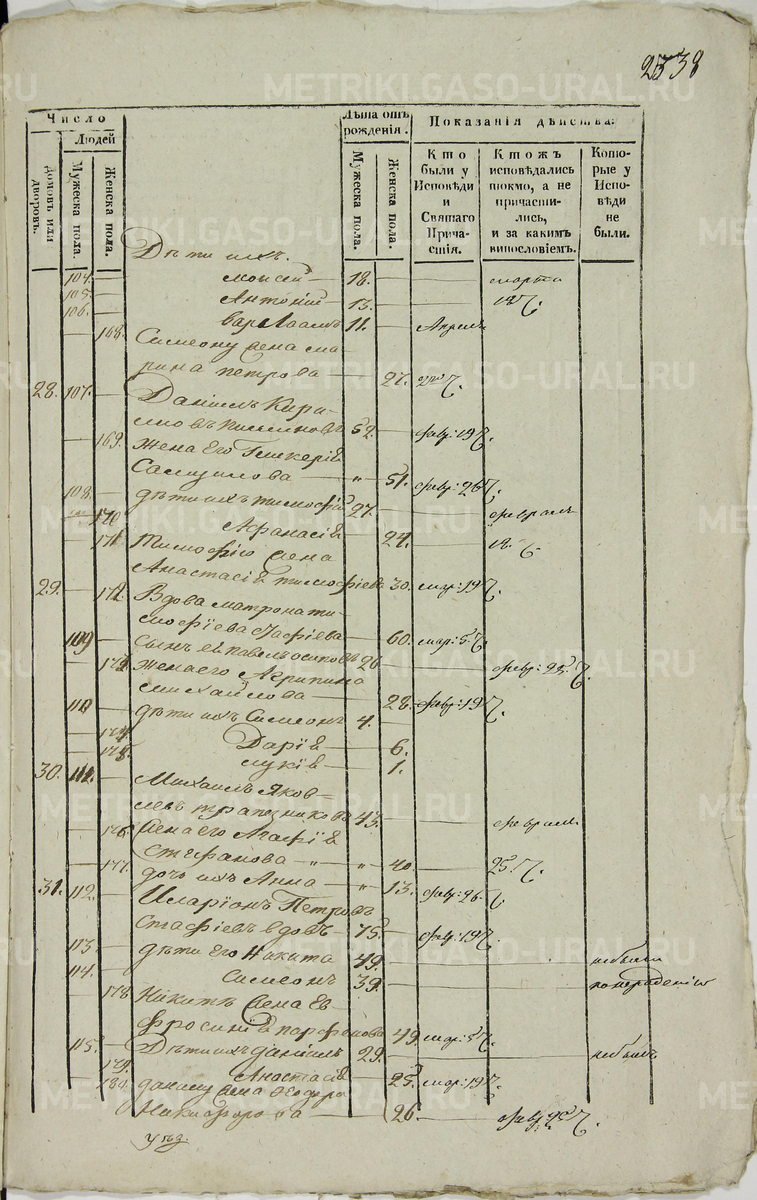 2538
Число
Людей
домовъ или дворовъ.
Мужеска пола.
Женска пола.
Лѣта отъ рожденія.
Мужеска пола.
Женска пола.
Показанія дѣйства:
Кто были у Исповѣди и Святаго Причастія.
Ктожъ исповѣдались токмо, а не причастились, и за какимъ винословіемъ.
Которые у Исповѣди не были.
Дѣти ихъ.
104. Моисей 18. марта
105. Антоній 13.
106. Варлаамъ 11. Апрель
168. Симеону жена Ма-
рина Петрова 27.
28. 107. Даніилъ Кири-
ловъ 52. февр: 19
169. Жена его Гликерія
Самуилова " 51. февр: 26
108. дѣти ихъ Тимофей 27. февраля
170 Афанасія 24.
171 Тимофею жена
Анастасія Тимофеева 30. мар: 19
29. 172 Вдова Матрона Ти-
мофѣева 60. мар: 5
109 сынъ ея Павелъ Осиповъ 26 февр: 25.
173 жена его Агрипина
Михайлова 28. февр: 19
110 дѣти ихъ Симеонъ 4.
174. Дарія 6.
175. Лукія 1.
30. 111. Михаилъ Яков-
левъ Трапезниковъ 43. февраля
176. Жена его Агафія
Стефанова " " 40. 25.
177. дочь ихъ Анна " 13. февр: 26.
31. 112. Иларіонъ Петровъ
вдовъ 75. февр: 19
113. дѣти его Никита 49. небыли
114. Симеонъ 39. по нерадѣнію
178. Никитѣ жена Ев-
фросинія Парфенова 49. мар: 5
115. Дѣти ихъ Даніилъ 29. небылъ
179. Анастасія 25. мар: 19
180. Данилу жена Ѳеодора
Никифорова 26. февр:
METRIKI.GASO-URAL.RU